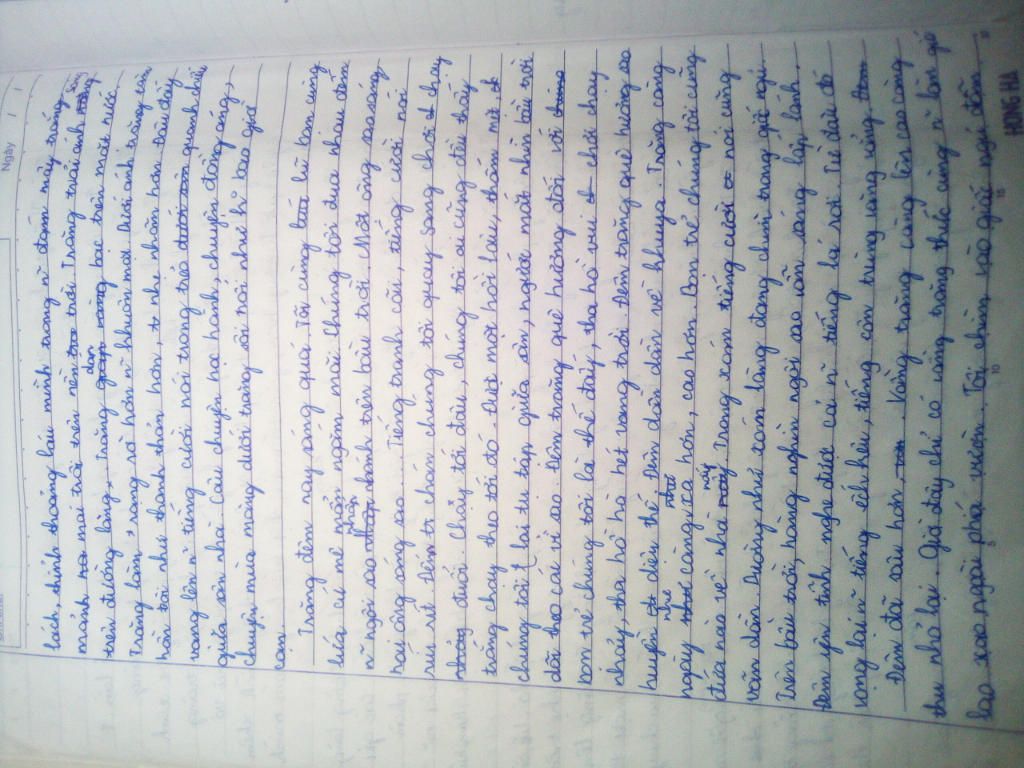 Ngày
lách, thỉnh thoảng lấu mình trong n~ đám mây trắng
mảnh mai trôi trên nền trời. Trăng trải ánh sáng
trên đường làng. Trăng dan bạc trên mặt nước.
Trăng làm sáng rõ hơn n~ khuôn mặt dưới ánh trăng của
hàn tôi như thanh thản hơn, nhẹ nhõm hơn. Đâu đây
vang lên n~ tiếng cười nói trong trẻo quanh chiếc
giữa sân nhà. Câu chuyện học hành, chuyện đồng áng,
chuyện mùa màng dưới trăng sôi nổi như hi bao giờ
cạn.
Trăng đêm nay sáng quá. Tôi cùng lũ bạn cùng
lứa cứ mê mẩn ngắm mãi. Chúng tôi đua nhau đếm
n~ ngôi sao nhấp nhánh trên bầu trời. Một ông sao sáng
hai ông sáng sao... Tiếng tranh cãi, tiếng cười nói
ríu rít. Đếm chán chúng tôi quay sang chơi chạy
đuổi. Chạy tới đâu, chúng tôi cũng đều thấy
trăng chạy theo tới đó. Đuổi một hồi lâu, thấm mệt
chúng tôi lại tụ tập giữa sân, ngước mắt nhìn bầu trời
dõi theo các vì sao. Đêm trăng quê hương đối với
bọn trẻ chúng tôi là thế đấy, tha hồ vui chơi chạy
nhảy, tha hồ hò hét vang trời. Đêm trăng quê hương sao
huyền diệu thế. Đêm dần dần về khuya. Trăng càng
ngày như càng xa hơn, cao hơn. Bọn trẻ chúng tôi cũng
đứa nào về nhà nấy. Trong xóm tiếng cười nói cũng
vãn dần. Dường như xóm làng đang chìm trong giấc ngủ.
Trên bầu trời, hàng nghìn ngôi sao vẫn sáng lấp lánh.
Đêm yên tĩnh nghe được cả n~ tiếng lá rơi. Từ đâu đó
vọng lại n~ tiếng ếch kêu, tiếng côn trùng văng vẳng.
Đêm đã sâu hơn. Vầng trăng càng lên cao càng
thu nhỏ lại. Giờ đây chỉ có vầng trăng thức cùng n~ làn gió
lao xao ngoài phía vườn. Tôi chìm vào giấc ngủ đêm
5
10
15
HONG HA